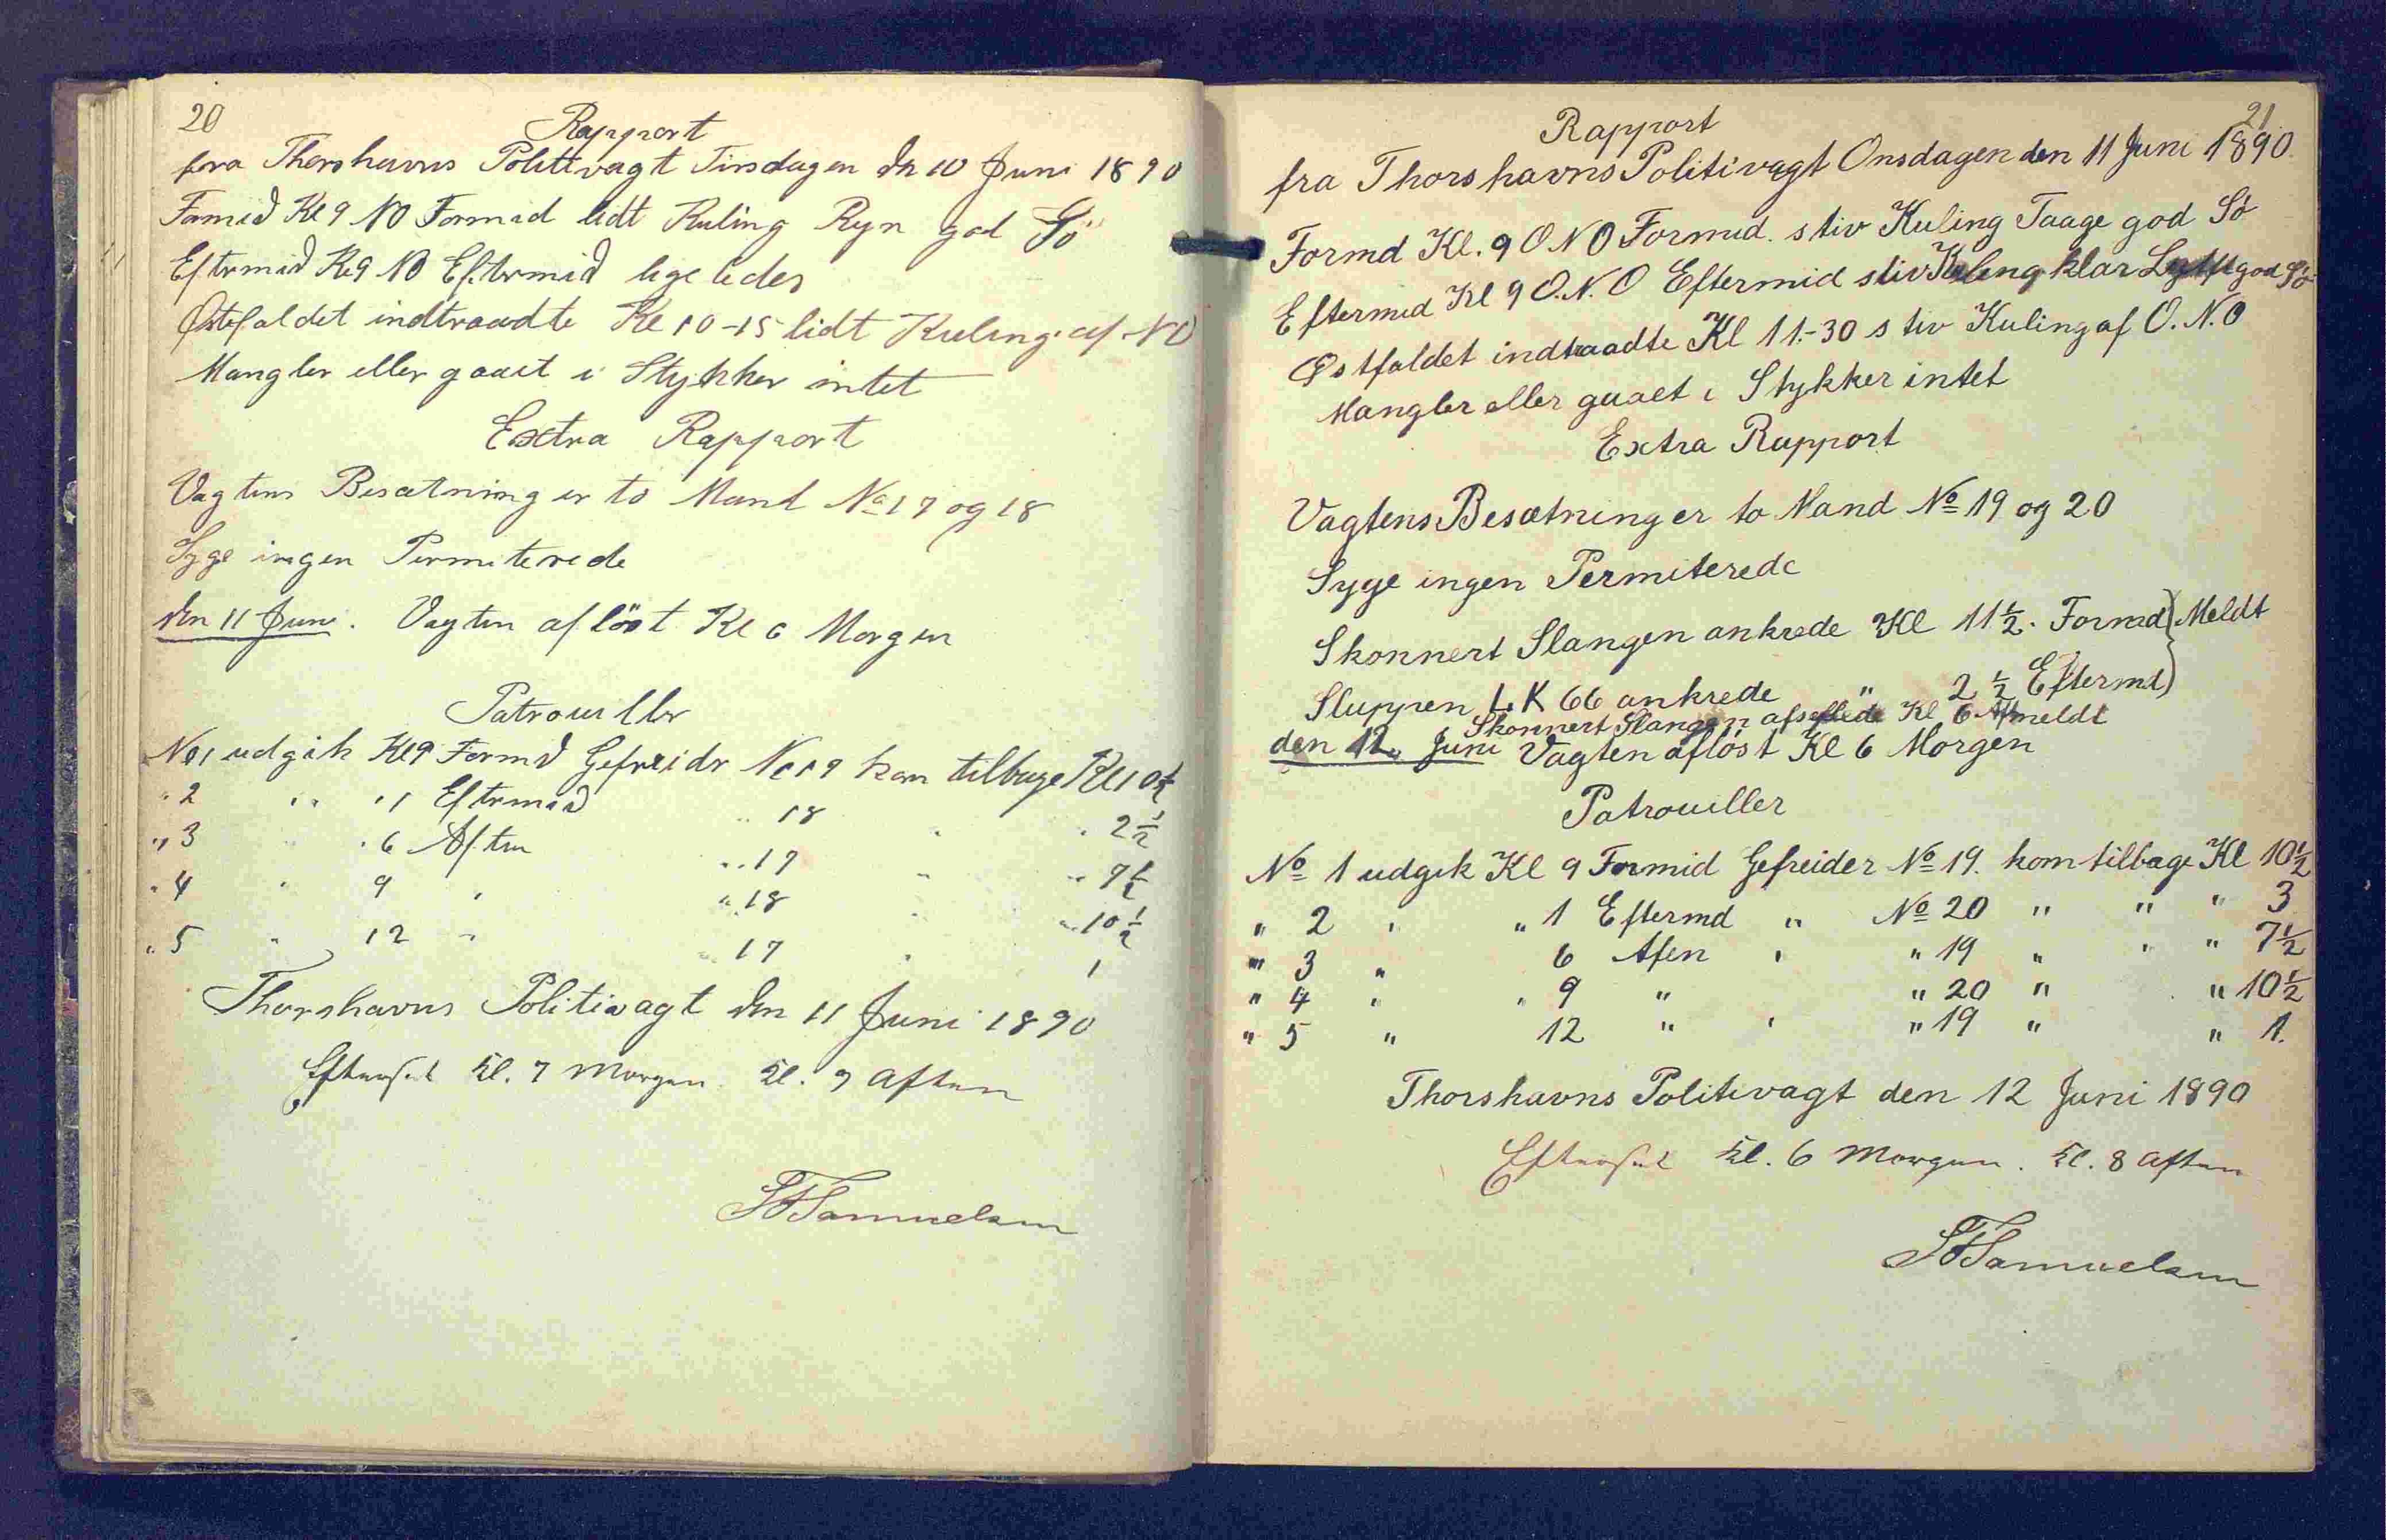 20
Rapport
fra Thorshavns Politivagt Tirsdagen dn 10 Juni 1890
Formid Kl 9 NO Formid lidt Kuling Ryn god Sö
Eftrmid Kl 9 NO Eftrmid ligeledes
Östefaldet indtraadte Kl 10-15 lidt Kuling af NO
Mangler eller gaaet i Stykker intet
Extra Rapport
Vagtens Besætning er to Mand No 17 og 18
Syge ingen Permiterede
den 11 Juni. Vagten aflöst Kl 6 Morgen
Patrouiller
No 1 udgik Kl 9 Formd Gefreider No 17 kom tilbage Kl 10½
" 2 " " 1 Eftrmid " 18 " " 2½
" 3 " " 6 Aften " 17 " " 7½
" 4 " 9 " " 18 " " 10½
" 5 " 12 " " 17 " 1
Thorshavns Politivagt den 11 Juni 1890
Efterset Kl. 7 Morgen. Kl. 9 Aften
Samuelsen
21
Rapport
fra Thorshavns Politivagt Onsdagen den 11 Juni 1890.
Formd Kl. 9 ONO Formid. stiv Kuling Taage god Sö
Eftermid Kl 9 O.N.O Eftermid stiv Kuling klar Luft god Sö
Østfaldet indtraadte Kl 11.-30 stiv Kuling af O.N.O
Mangler eller gaaet i Stykker intet
Extra Rapport
Vagtens Besætning er to Mand No 19 og 20
Syge ingen Permiterede
Skonnert Slangen ankrede Kl 11½. Formd } Meldt
Sluppen L.K 66 ankrede " 2½ Eftermd }
Skonnert Slangen afseilede Kl 6 Afmeldt
den 12. Juni Vagten aflöst Kl 6 Morgen
Patrouiller
No 1 udgik Kl 9 Formid Gefreider No 19. kom tilbage Kl 10½
" 2 " " 1 Eftermd " No 20 " " " 3
" 3 " 6 Afen " " 19 " " " 7½
" 4 " " 9 " " 20 " " 10½
" 5 " 12 " " " 19 " " 1.
Thorshavns Politivagt den 12 Juni 1890
Efterset Kl. 6 Morgen. Kl. 8 Aften
Samuelsen